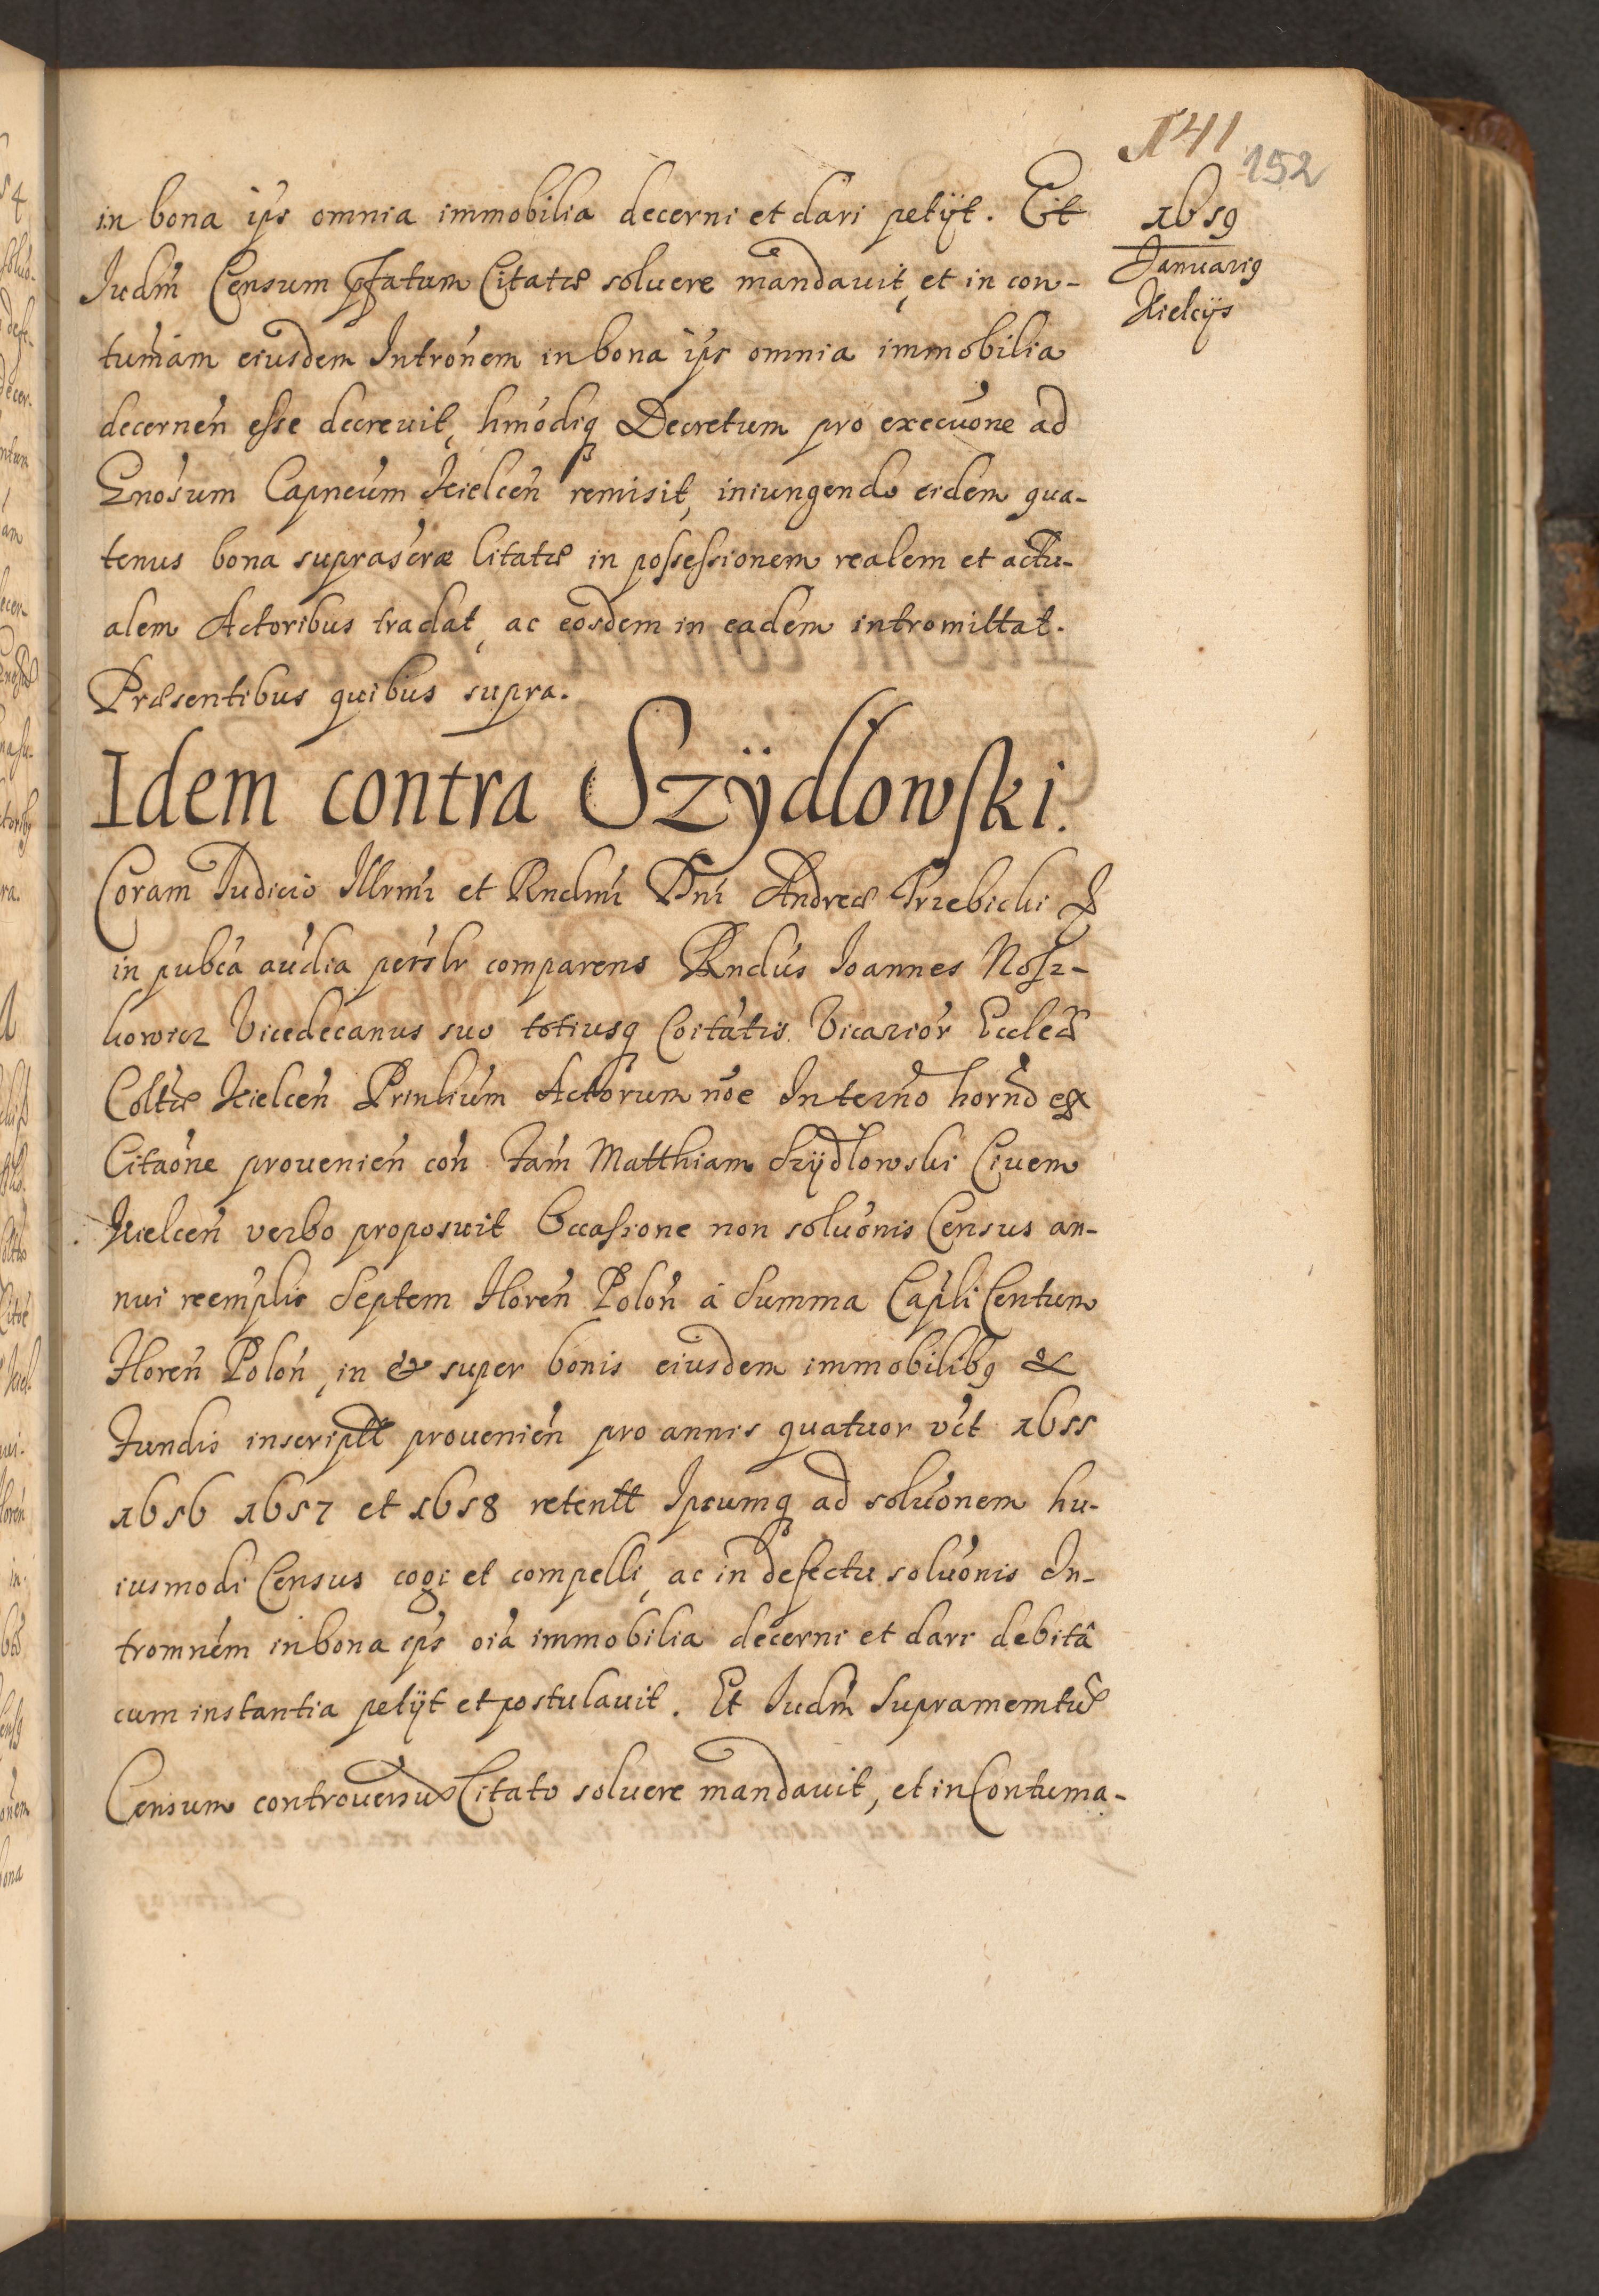 141
152
1659
Januarig
Kielcijs
in bona ips omnia immobilia decerni et dari petÿt. Et
Iudm̃ Censum pfatum Citatæ soluere mandauit, et in con-
tumãm eiusdem Intronem in bona ips omnia immobilia
decernen̄ esse decreuit, hmodiq Decretum pro execuone ad
Gnosum Capneum Kielcen̄ remisit, iniungendo eidem qua-
tenus bona suprascræ Citatæ in possessionem realem et actu-
alem Actoribus tradat, ac eosdem in eadem intromittat.
Præsentibus quibus supra.
Idem contra Szÿdlowski.
Coram Iudicio Illrmi et Rndmi Dni Andreæ Trzebicki &
in pubca audia perslr comparens Rndus Ioannes Nosz-
kowicz Vicedecanus suo totiusq Coitatis Vicarior Eccleæ
Coltæ Kielcen̄ Prinlium Actorum noe In termno hornd ex
Citaone prouenien̄ con̄ Fam̄ Matthiam Szÿdlowski Ciuem
Kielcen̄ verbo proposuit Occasione non soluonis Census an-
nui reemplis Septem Floren̄ Polon̄ à Summa Capli Centum
Floren̄ Polon̄, in & super bonis eiusdem immobilibq &
Fundis inscriptt prouenien̄ pro annis quatuor vct 1655
1656 1657 et 1658 retentt Ipsumq ad soluonem hu-
iusmodi Census cogi et compelli, ac in defectu soluonis In-
tromnem in bona ips oia immobilia decerni et dari debitâ
cum instantia petÿt et postulauit. Et Iudm̃ Supramemtũ
Censum controuersum Citato soluere mandauit, et in Contuma-